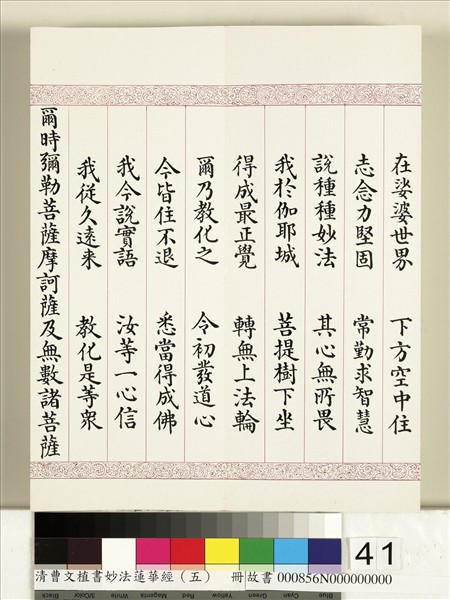 在娑婆世界　下方空中住
志念力堅固　常勤求智慧
說種種妙法　其心無所畏
我於伽耶城　菩提樹下坐
得成最正覺　轉無上法輪
爾乃教化之　令初發道心
今皆住不退　悉當得成佛
我今說實語　汝等一心信
我從久遠來　教化是等眾
爾時彌勒菩薩摩訶薩及無數諸菩薩
41
清曹文植書妙法蓮華經（五）　冊故書 000856N000000000
Black 3/Color White Magenta Red Yellow Green Cyan Blue